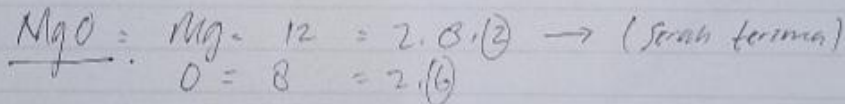 MgO : Mg = 12 = 2.8.2 → (Serah terima)
O = 8 = 2.6